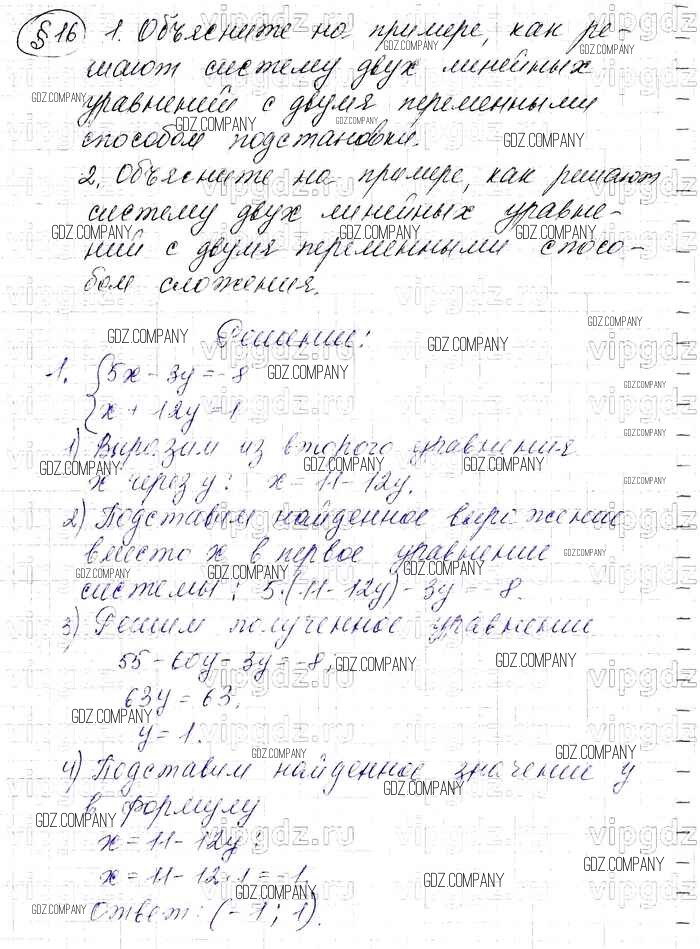 § 16 1. Объясните на примере, как ре-
шают систему двух линейных
уравнений с двумя переменными
способом подстановки.
2. Объясните на примере, как решают
систему двух линейных уравне-
ний с двумя переменными спосо-
бом сложения.
Решение:
1. {5x - 3y = -8
{x + 12y = 11
1) Выразим из второго уравнения
x через y: x = 11 - 12y.
2) Подставим найденное выражение
вместо x в первое уравнение
системы: 5·(11 - 12y) - 3y = -8.
3) Решим полученное уравнение
55 - 60y - 3y = -8,
63y = 63,
y = 1.
4) Подставим найденное значение y
в формулу
x = 11 - 12y:
x = 11 - 12·1 = -1.
Ответ: (-1; 1).
GDZ.COMPANY
vipgdz.ru